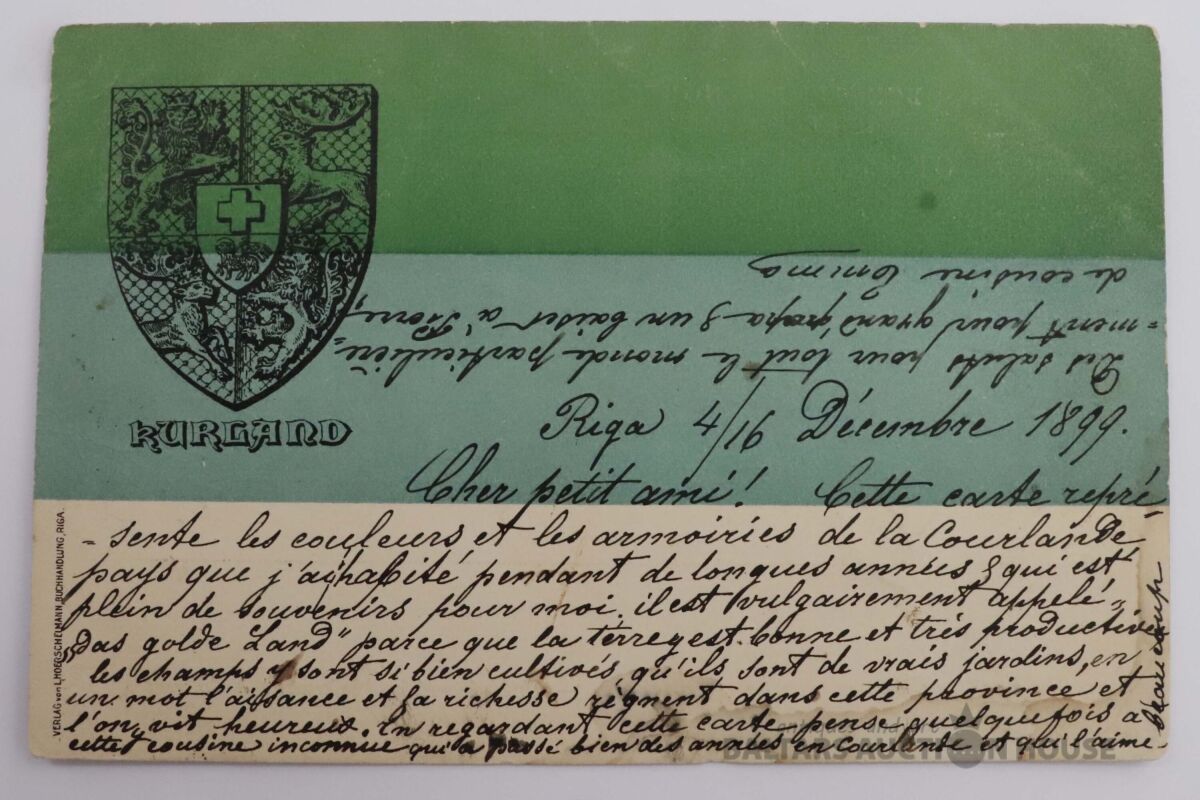 KURLAND
Riga 4/16 Décembre 1899.
Cher petit ami! Cette carte repré-
-sente les couleurs et les armoiries de la Courlande
pays que j'ai habité pendant de longues années & qui est
plein de souvenirs pour moi, il est vulgairement appelé
„Das golde Land" parce que la terre y est bonne et très productive
les champs y sont si bien cultivés, qu'ils sont de vrais jardins, en
un mot l'aisance et la richesse règnent dans cette province et
l'on vit heureux. En regardant cette carte, pense quelquefois à
cette cousine inconnue qui a passé bien des années en Courlande et qui l'aime
beaucoup
Des saluts pour tout le monde particulière-
-ment pour grand'papa & un baiser à
de cousine Emma
VERLAG von L. HOERSCHELMANN, BUCHHANDLUNG, RIGA.
BALTARS AUCTION HOUSE